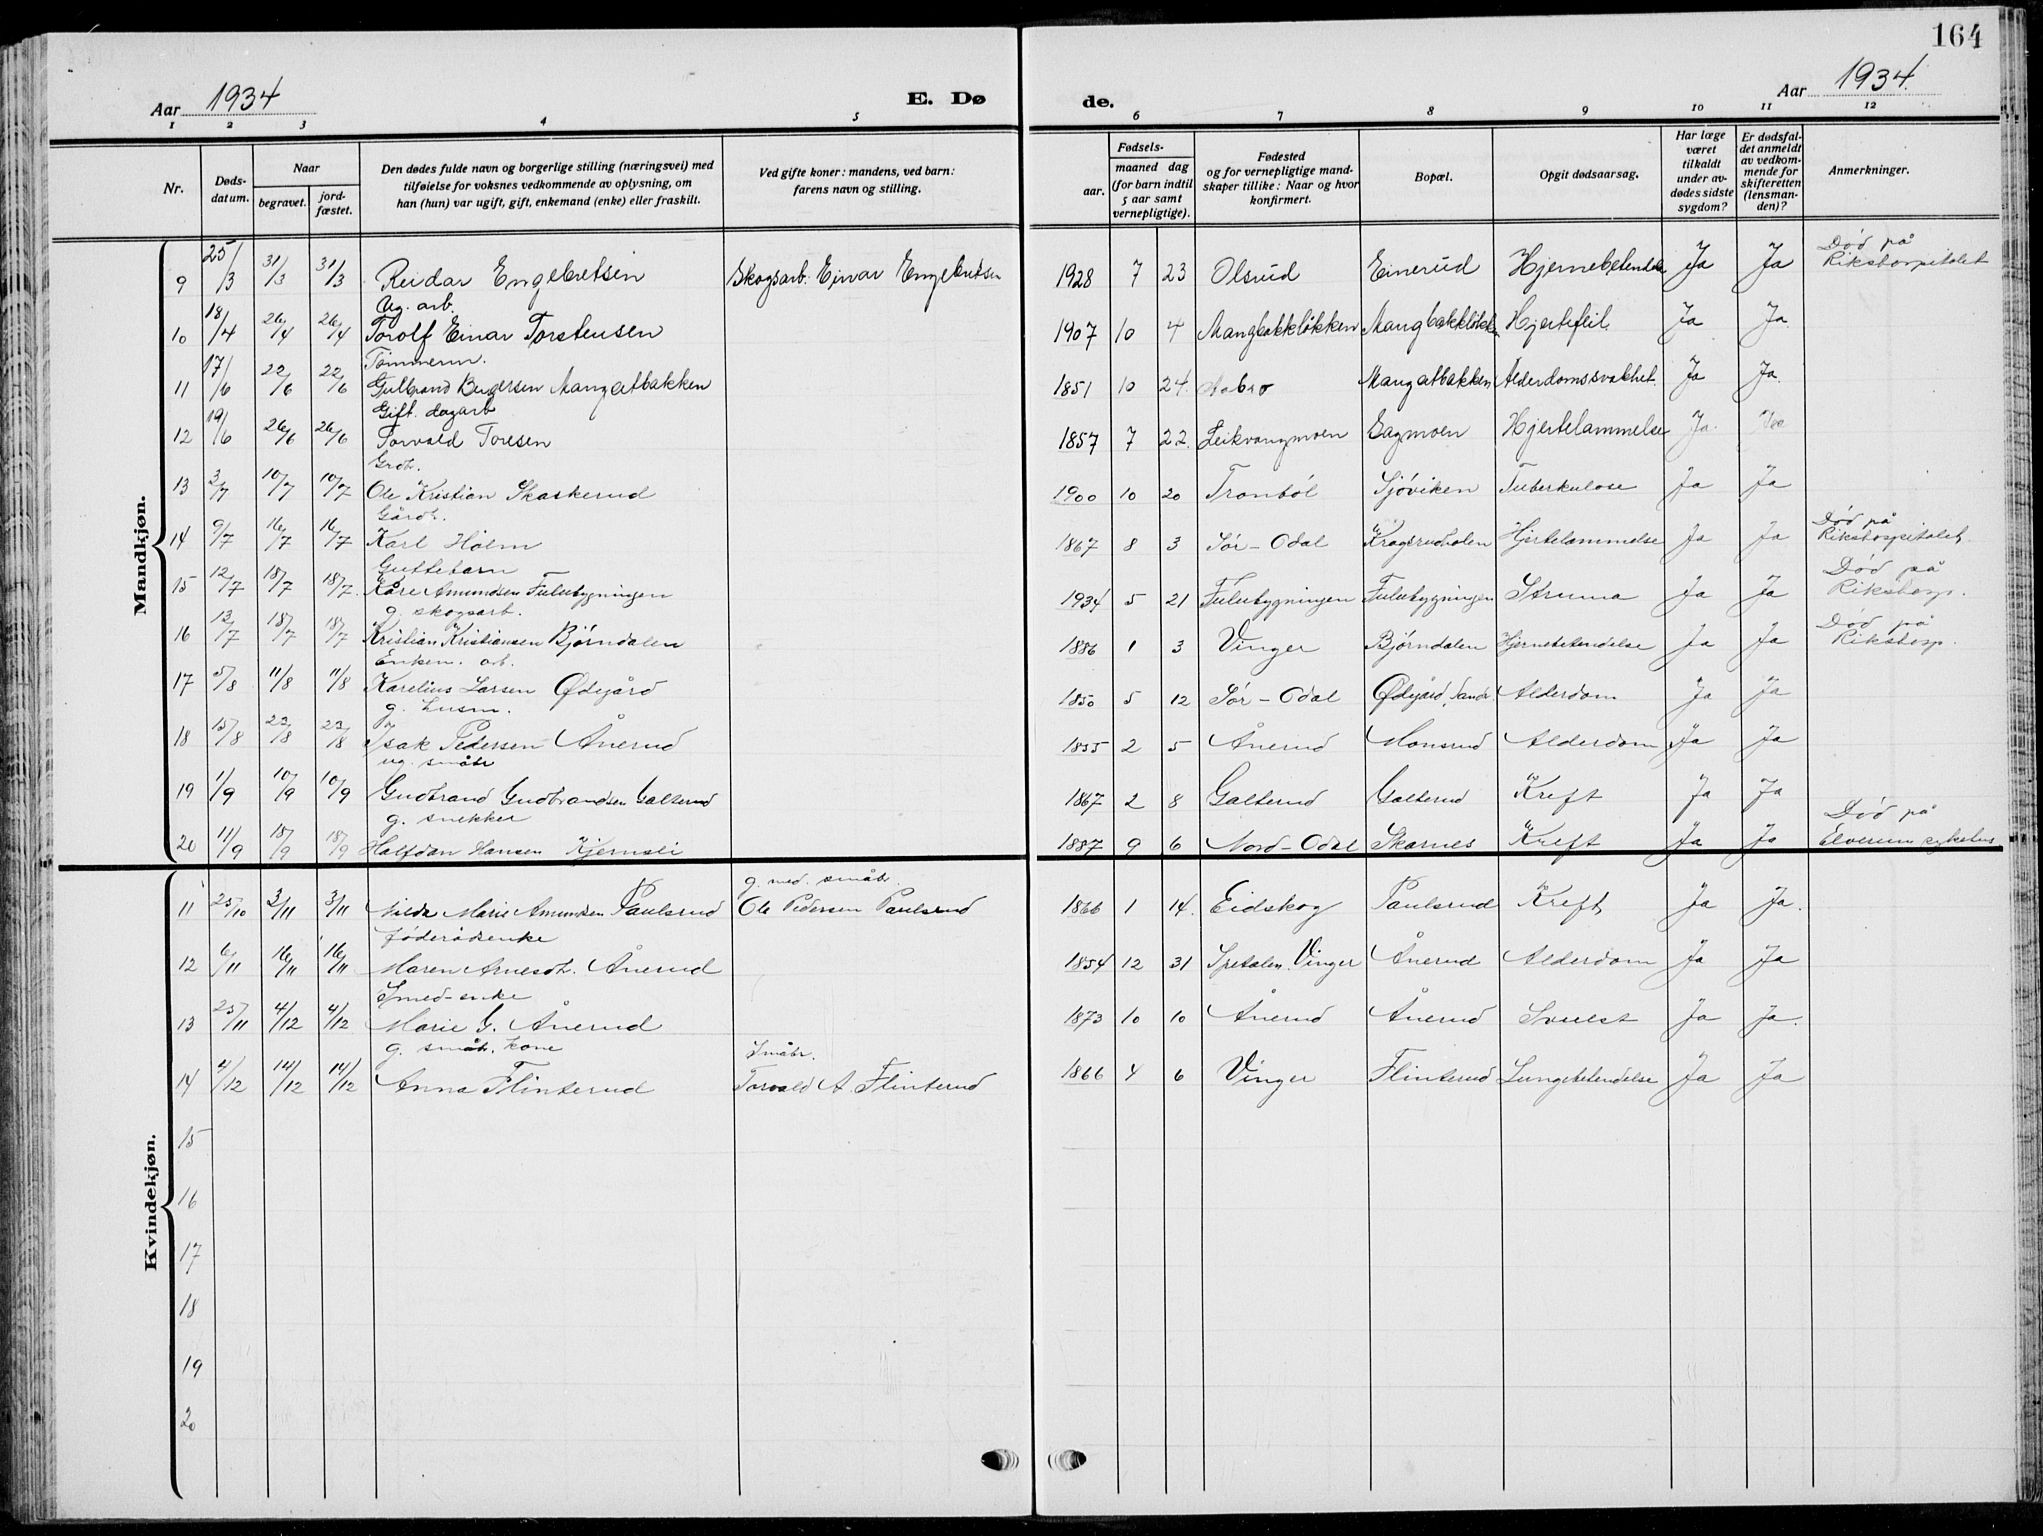 164
Aar 1934
E. Dø
de.
Aar 1934.
1 2 3 4 5 6 7 8 9 10 11 12
Nr.
Døds-
datum.
Naar
begravet.
jord-
fæstet.
Den dødes fulde navn og borgerlige stilling (næringsvei) med
tilføielse for voksnes vedkommende av oplysning, om
han (hun) var ugift, gift, enkemand (enke) eller fraskilt.
Ved gifte koner: mandens, ved barn:
farens navn og stilling.
Fødsels-
aar.
maaned dag
(for barn indtil
5 aar samt
vernepligtige).
Fødested
og for vernepligtige mand-
skaper tillike: Naar og hvor
konfirmert.
Bopæl.
Opgit dødsaarsag.
Har læge
været
tilkaldt
under av-
dødes sidste
sygdom?
Er dødsfal-
det anmeldt
av vedkom-
mende for
skifteretten
(lensman-
den)?
Anmerkninger.
Mandkjøn.
Død på
9 25/3 31/3 31/3 Reidar Engebretsen Skogsarb. Einar Engebretsen 1928 7 23 Olsrud Einerud Hjernebetendelse Ja Ja Rikshospitalet
Ug. arb.
10 18/4 26/4 26/4 Torolf Einar Torstensen 1907 10 4 Mangbakkløkken Mangbakkløkken Hjertefeil Ja Ja
Tømmerm.
11 17/6 22/6 22/6 Gulbrand Birgersen Mangatbakken 1851 10 24. Aabro Mangatbakken Alderdomssvakhet. Ja Ja.
Gift dagarb
12 19/6 26/6 26/6 Torvald Toresen 1857 7 22. Leikvangmoen Sagmoen Hjertelammelse Ja.
Grdb.
13 3/7 10/7 10/7 Ole Kristian Skaskerud 1900 10 20 Tronbøl Sjøviken Tuberkulose Ja Ja
Gårdb. Død på
14 9/7 16/7 16/7 Karl Holm 1867 8 3 Sør-Odal Kragsrudholen Hjertelammelse Ja Ja Rikshospitalet
Guttebarn Død på
15 12/7 18/7 18/7. Kåre Amundsen Fulubygningen 1934 5 21 Fulubygningen Fulubygningen Struma Ja Ja Rikshosp.
g. skogsarb. Død på
16 13/7 18/7 18/7 Kristian Kristiansen Bjørndalen 1886 1 3 Vinger Bjørndalen Hjernebetendelse Ja Ja Rikshosp.
Enkem. arb.
17 5/8 11/8 11/8 Karelius Larsen Ødegård 1850 5 12 Sør-Odal Ødegård, Alderdom Ja Ja
g. husm.
18 15/8 22/8 22/8 Isak Pedersen Ånerud 1855 2 5 Ånerud Monsrud Alderdom Ja Ja
ug. småbr
19 1/9 10/9 10/9 Gudbrand Gudbrandsen Galterud 1867 2 8 Galterud Galterud Kreft Ja Ja
g. snekker Død på
20 11/9 18/9 18/9 Halfdan Hansen Kjernsli 1887 9 6 Nord-Odal Skarnes Kreft Ja Ja Elverum sykehus
Kvindekjøn.
g. med småbr.
11 25/10 3/11 3/11 Milda Marie Amundsen Paulsrud Ole Pedersen Paulsrud 1866 1 14. Eidskog Paulsrud Kreft Ja Ja.
føderådsenke
12 6/11 16/11 16/11 Maren Arnesdt. Ånerud 1854 12 31 Spetalen Vinger Ånerud Alderdom Ja Ja
Smed-enke
13 25/11 4/12 4/12 Marie G. Ånerud 1873 10 10 Ånerud Ånerud Svulst Ja Ja.
g. småbr. kone Småbr.
14 4/12 14/12 14/12 Anna Flinterud Torvald A. Flinterud 1866 4 6 Vinger Flinterud Lungebetendelse Ja Ja
15
16
17
18
19
20